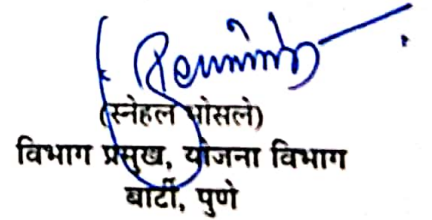 (स्नेहल भोसले)
विभाग प्रमुख, योजना विभाग
बार्टी, पुणे